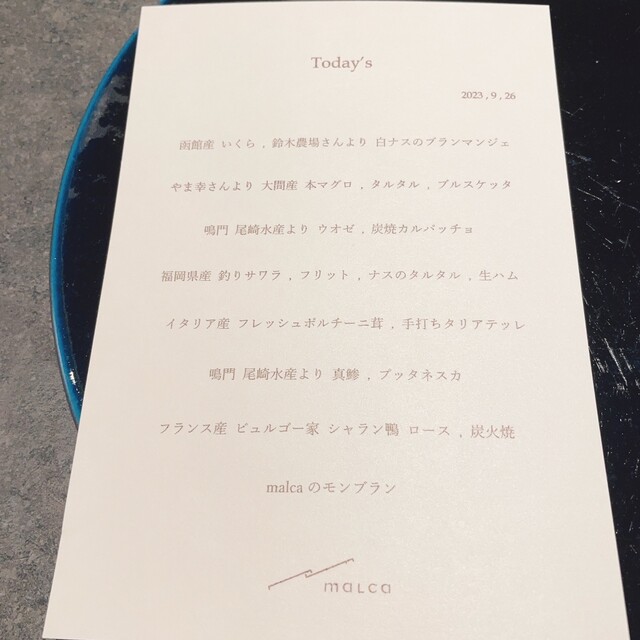 Today's
2023 , 9 , 26
函館産 いくら , 鈴木農場さんより 白ナスのブランマンジェ
やま幸さんより 大間産 本マグロ , タルタル , ブルスケッタ
鳴門 尾崎水産より ウオゼ , 炭焼カルパッチョ
福岡県産 釣りサワラ , フリット , ナスのタルタル , 生ハム
イタリア産 フレッシュポルチーニ茸 , 手打ちタリアテッレ
鳴門 尾崎水産より 真鯵 , プッタネスカ
フランス産 ビュルゴー家 シャラン鴨 ロース , 炭火焼
malca のモンブラン
maLca